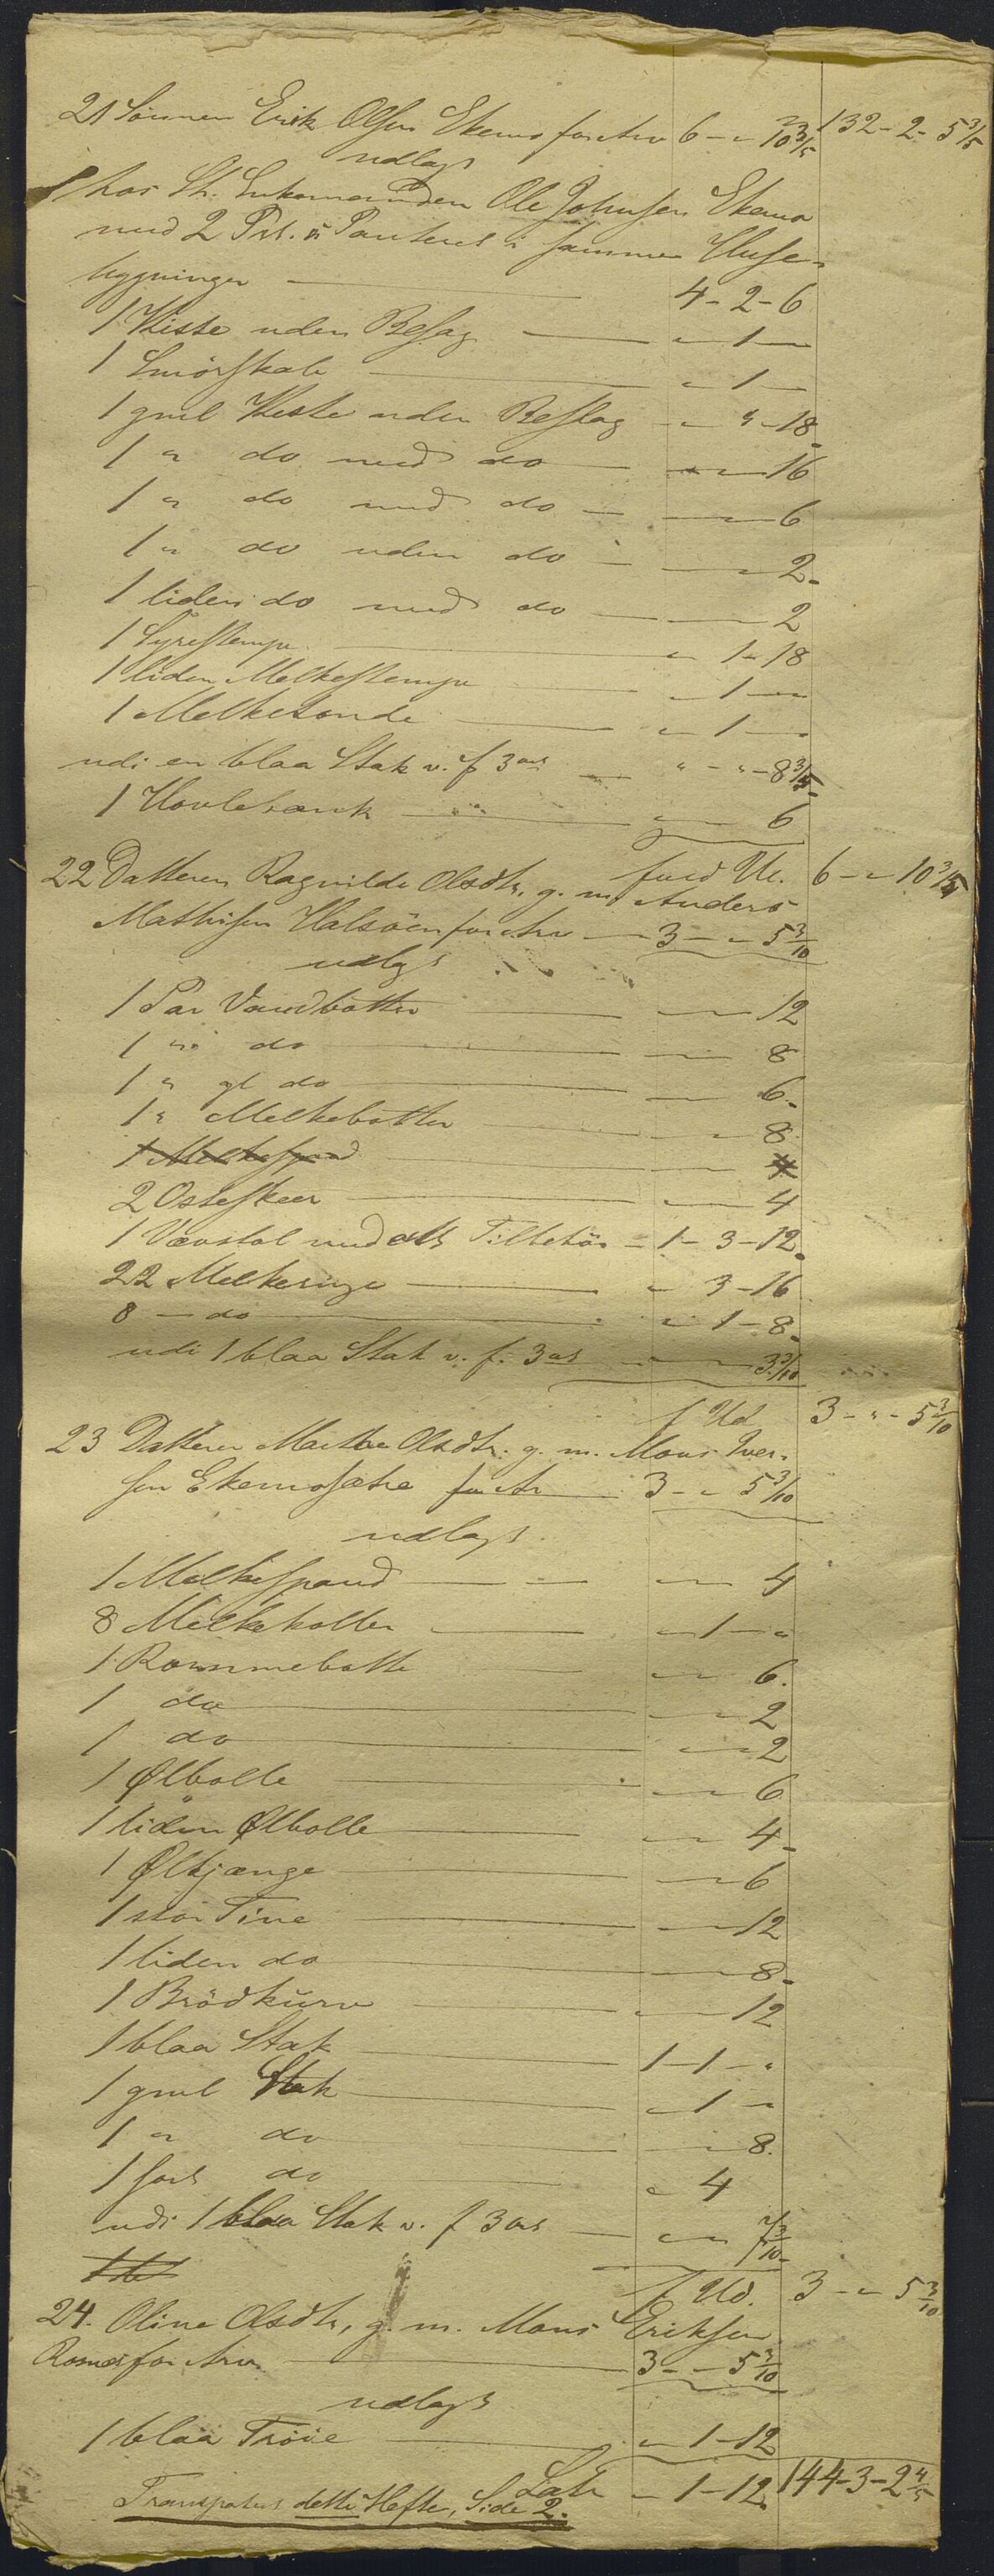 21 Sönnen Erik Olsen Ekemo for Arv 6 - " 10 3/5 132 - 2 - 5 3/5
udlagt
hos St. Enkemanden Ole Johnsen Ekemo
med 2 Prt. Panteret i samme Huse-
bygninger 4 - 2 - 6
1 Kiste uden Beslag " 1 "
1 Smörskaal " 1 "
1 gml Kiste uden Beslag " " - 18
1 " do med do " " 16
1 " do med do " 6
1 " do uden do " 2
1 liden do med do " 2
1 Syrestampe " 1 - 18
1 liden Melkestampe " 1 "
1 Melkesonde " 1 "
udi en blaa Stak v. f 3 ort " - " - 8 3/5
1 Hovlebænk " 6
fuld Ud. 6 - " 10 3/5
22 Datteren Ragnilde Olsdtr, g. m. Anders
Mathisen Halsöen for Arv 3 - " 5 3/10
udlagt
1 Par Vandbötter " 12
1 " do " 8
1 " gl do " 6
1 " Melkebötter " 8
1 Melkespand 4
2 Osteskeer " 4
1 Vævstol med alt Tilbehör 1 - 3 - 12
22 Melkeringe " 3 - 16
8 - do " 1 - 8
udi 1 blaa Stak v. f. 3 ort " 3 3/10
f Ud 3 - " - 5 3/10
23 Datteren Marthe Olsdtr. g. m. Mons Iver-
sen Ekemosætre for Arv 3 - " 5 3/10
udlagt
1 Melkespand " 4
8 Melkekoller " 1 "
1 Rømmebøtte " 6
1 do " 2
1 do " 2
1 Ølbolle " 6
1 liden Ølbolle " 4
1 Ølkjænge " 6
1 stor Tine " 12
1 liden do " 8
1 Brödkurv " 12
1 blaa Stak 1 - 1 - "
1 gml Stak " 1 "
1 " do " 8
1 sort do " 4
udi 1 blaa Stak v. f 3 ort " 7 3/10
f Ud. 3 - " 5 3/10
24. Oline Olsdtr, g. m. Mons Eriksen
Romø for Arv 3 - " 5 3/10
udlagt
1 blaa Tröie " 1 - 12
Latr " 1 - 12 144 - 3 - 2 4/5
Transporteres dette Hefte, Side 2.